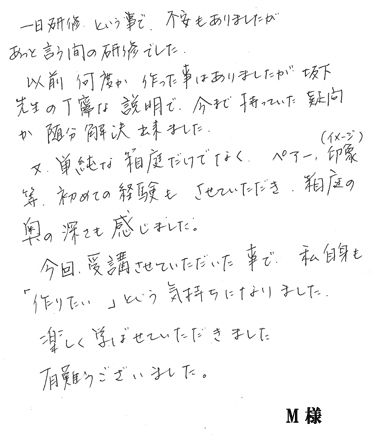 一日研修 という事で、不安もありましたが
あっと言う間の研修でした.
以前 何度か 作った事はありましたが 坂下
先生の丁寧な 説明で、今まで 持っていた 疑問
が 随分 解決 出来ました.
又、単純な 箱庭だけでなく、ペアー、印象(イメージ)
等、初めての 経験も させていただき、箱庭の
奥の 深さも 感じました。
今回、受講させていただいた 事で、 私自身も
「作りたい 」という 気持ちになりました.
楽しく 学ばせていただきました
有難うございました。
M 様